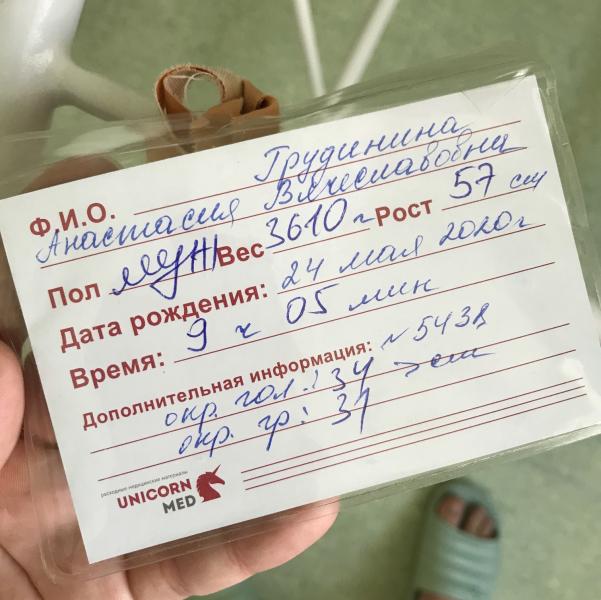 Грудинина
Ф.И.О.
Анастасия Вячеславовна
Пол муж Вес 3610 г Рост 57 см
Дата рождения: 24 мая 2020г
Время: 9 ч 05 мин
Дополнительная информация: №
окр. гол.: 34 см
окр. гр.: 31
расходные медицинские материалы
UNICORN
MED